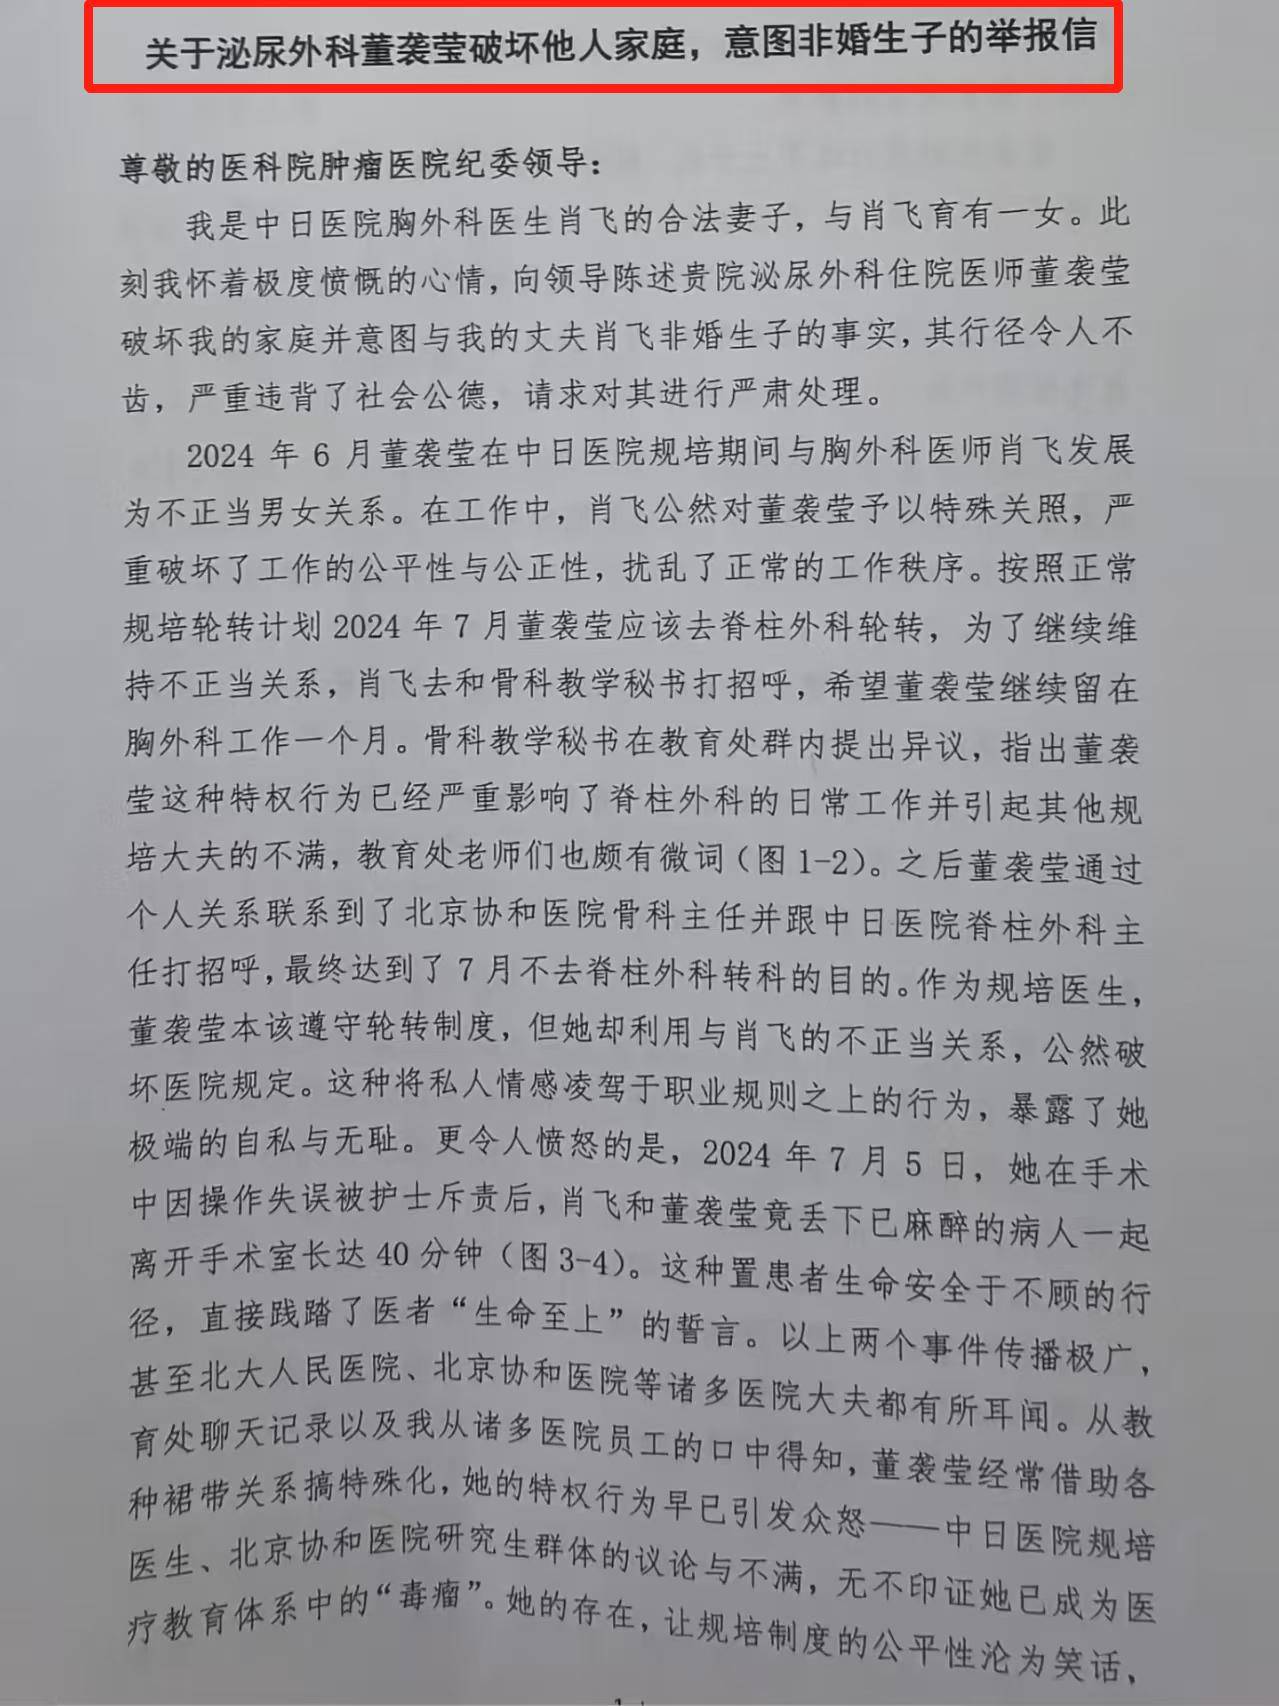 关于泌尿外科董袭莹破坏他人家庭，意图非婚生子的举报信
尊敬的医科院肿瘤医院纪委领导：
我是中日医院胸外科医生肖飞的合法妻子，与肖飞育有一女。此
刻我怀着极度愤慨的心情，向领导陈述贵院泌尿外科住院医师董袭莹
破坏我的家庭并意图与我的丈夫肖飞非婚生子的事实，其行径令人不
齿，严重违背了社会公德，请求对其进行严肃处理。
2024 年 6 月董袭莹在中日医院规培期间与胸外科医师肖飞发展
为不正当男女关系。在工作中，肖飞公然对董袭莹予以特殊关照，严
重破坏了工作的公平性与公正性，扰乱了正常的工作秩序。按照正常
规培轮转计划 2024 年 7 月董袭莹应该去脊柱外科轮转，为了继续维
持不正当关系，肖飞去和骨科教学秘书打招呼，希望董袭莹继续留在
胸外科工作一个月。骨科教学秘书在教育处群内提出异议，指出董袭
莹这种特权行为已经严重影响了脊柱外科的日常工作并引起其他规
培大夫的不满，教育处老师们也颇有微词（图 1-2）。之后董袭莹通过
个人关系联系到了北京协和医院骨科主任并跟中日医院脊柱外科主
任打招呼，最终达到了 7 月不去脊柱外科转科的目的。作为规培医生，
董袭莹本该遵守轮转制度，但她却利用与肖飞的不正当关系，公然破
坏医院规定。这种将私人情感凌驾于职业规则之上的行为，暴露了她
极端的自私与无耻。更令人愤怒的是，2024 年 7 月 5 日，她在手术
中因操作失误被护士斥责后，肖飞和董袭莹竟丢下已麻醉的病人一起
离开手术室长达 40 分钟（图 3-4）。这种置患者生命安全于不顾的行
径，直接践踏了医者“生命至上”的誓言。以上两个事件传播极广，
甚至北大人民医院、北京协和医院等诸多医院大夫都有所耳闻。从教
育处聊天记录以及我从诸多医院员工的口中得知，董袭莹经常借助各
种裙带关系搞特殊化，她的特权行为早已引发众怒——中日医院规培
医生、北京协和医院研究生群体的议论与不满，无不印证她已成为医
疗教育体系中的“毒瘤”。她的存在，让规培制度的公平性沦为笑话，